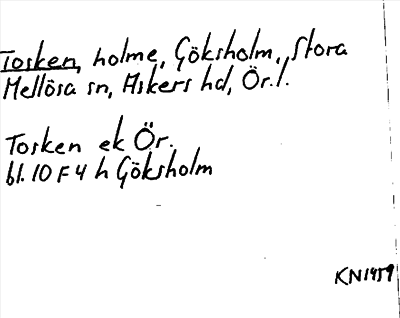 Tosken, holme, Göksholm, Stora
Mellösa sn, Askers hd, Ör.l.
Tosken ek Ör.
bl. 10 F 4 h Göksholm
KN1959